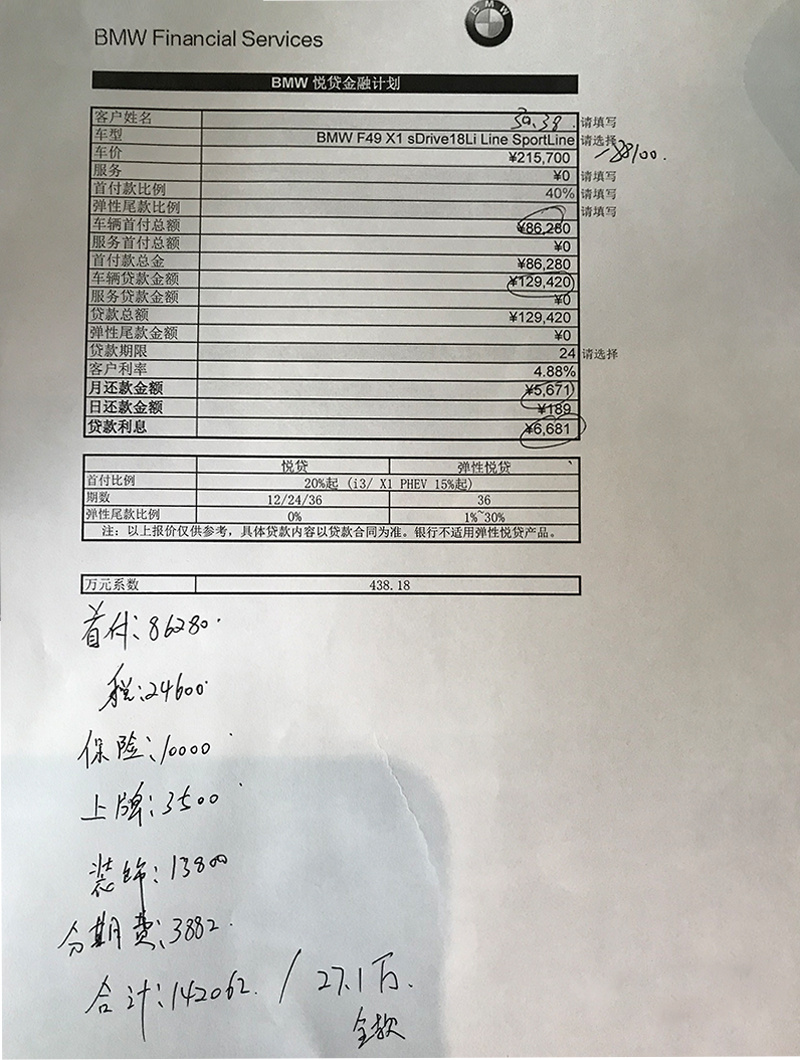 BMW
BMW Financial Services
BMW 悦贷金融计划
客户姓名 30.38. 请填写
车型 BMW F49 X1 sDrive18Li Line SportLine 请选择
车价 ¥215,700 -88100.
服务 ¥0 请填写
首付款比例 40% 请填写
弹性尾款比例 请填写
车辆首付总额 ¥86,280
服务首付总额 ¥0
首付款总金 ¥86,280
车辆贷款金额 ¥129,420
服务贷款金额 ¥0
贷款总额 ¥129,420
弹性尾款金额 ¥0
贷款期限 24 请选择
客户利率 4.88%
月还款金额 ¥5,671
日还款金额 ¥189
贷款利息 ¥6,681
悦贷 弹性悦贷
首付比例 20%起 (i3/ X1 PHEV 15%起)
期数 12/24/36 36
弹性尾款比例 0% 1%~30%
注：以上报价仅供参考，具体贷款内容以贷款合同为准。银行不适用弹性悦贷产品。
万元系数 438.18
首付:86280.
税:24600.
保险:10000.
上牌:3500.
装饰:13800
分期费:3882.
合计:142062. / 27.1万.
全款